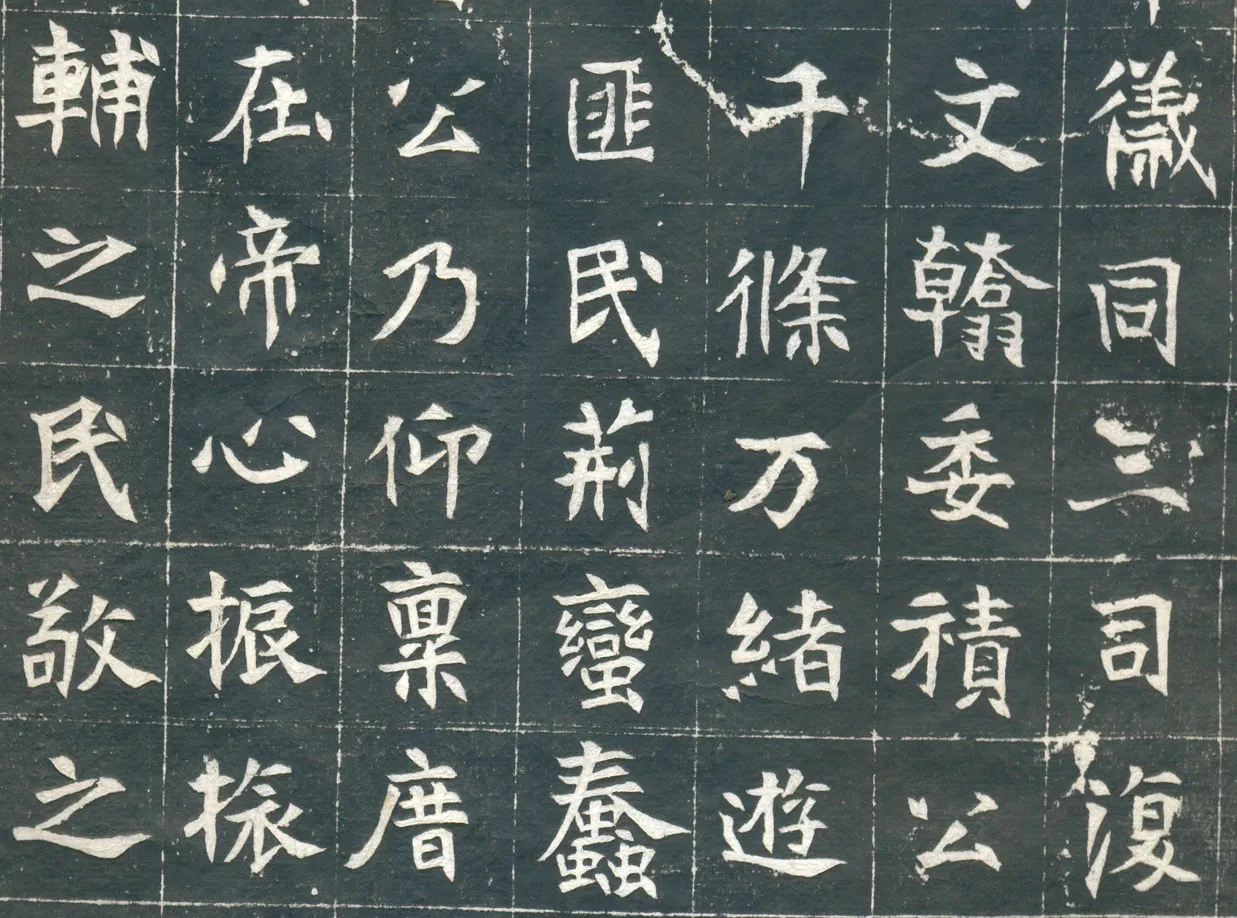 儀同三司復
文翰委積公
千條万緒遊
匪民荊蠻蠢
公乃仰稟
在帝心振旅
輔之民敬之